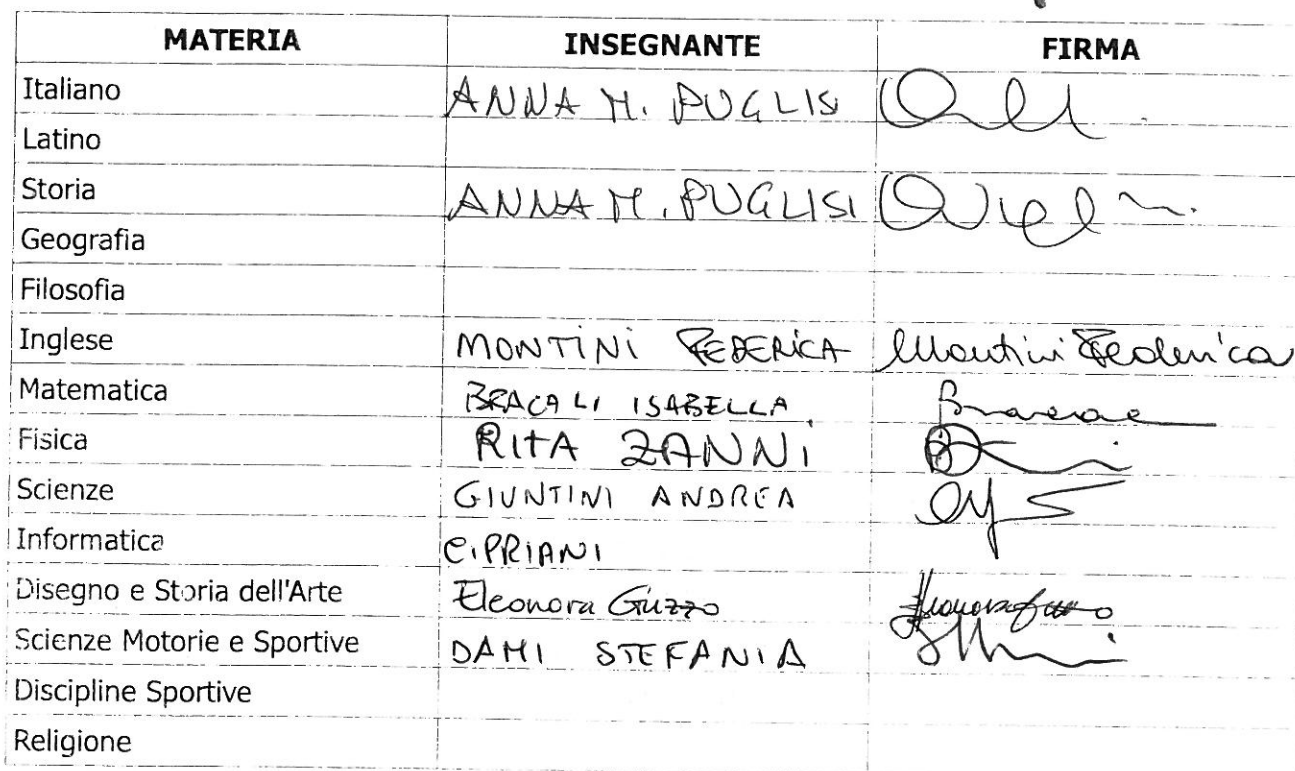 MATERIA INSEGNANTE FIRMA
Italiano ANNA M. PUGLISI
Latino
Storia ANNA M. PUGLISI
Geografia
Filosofia
Inglese MONTINI FEDERICA Montini Federica
Matematica BRACALI ISABELLA
Fisica RITA ZANNI
Scienze GIUNTINI ANDREA
Informatica CIPRIANI
Disegno e Storia dell'Arte Eleonora Guzzo
Scienze Motorie e Sportive DAMI STEFANIA
Discipline Sportive
Religione